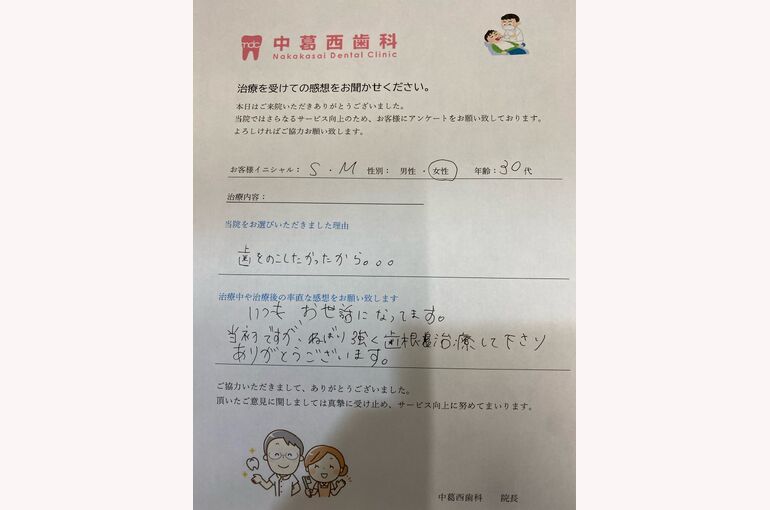 mdc 中葛西歯科
Nakakasai Dental Clinic
治療を受けての感想をお聞かせください。
本日はご来院いただきありがとうございました。
当院ではさらなるサービス向上のため、お客様にアンケートをお願い致しております。
よろしければご協力お願い致します。
お客様イニシャル： S . M 性別： 男性 ・ 女性 年齢：30代
治療内容：
当院をお選びいただきました理由
歯をのこしたかったから。。。
治療中や治療後の率直な感想をお願い致します
いつも お世話になってます。
当初ですが、ねばり強く歯根治療して下さり
ありがとうございます。
ご協力いただきまして、ありがとうございました。
頂いたご意見に関しましては真摯に受け止め、サービス向上に努めてまいります。
中葛西歯科 院長